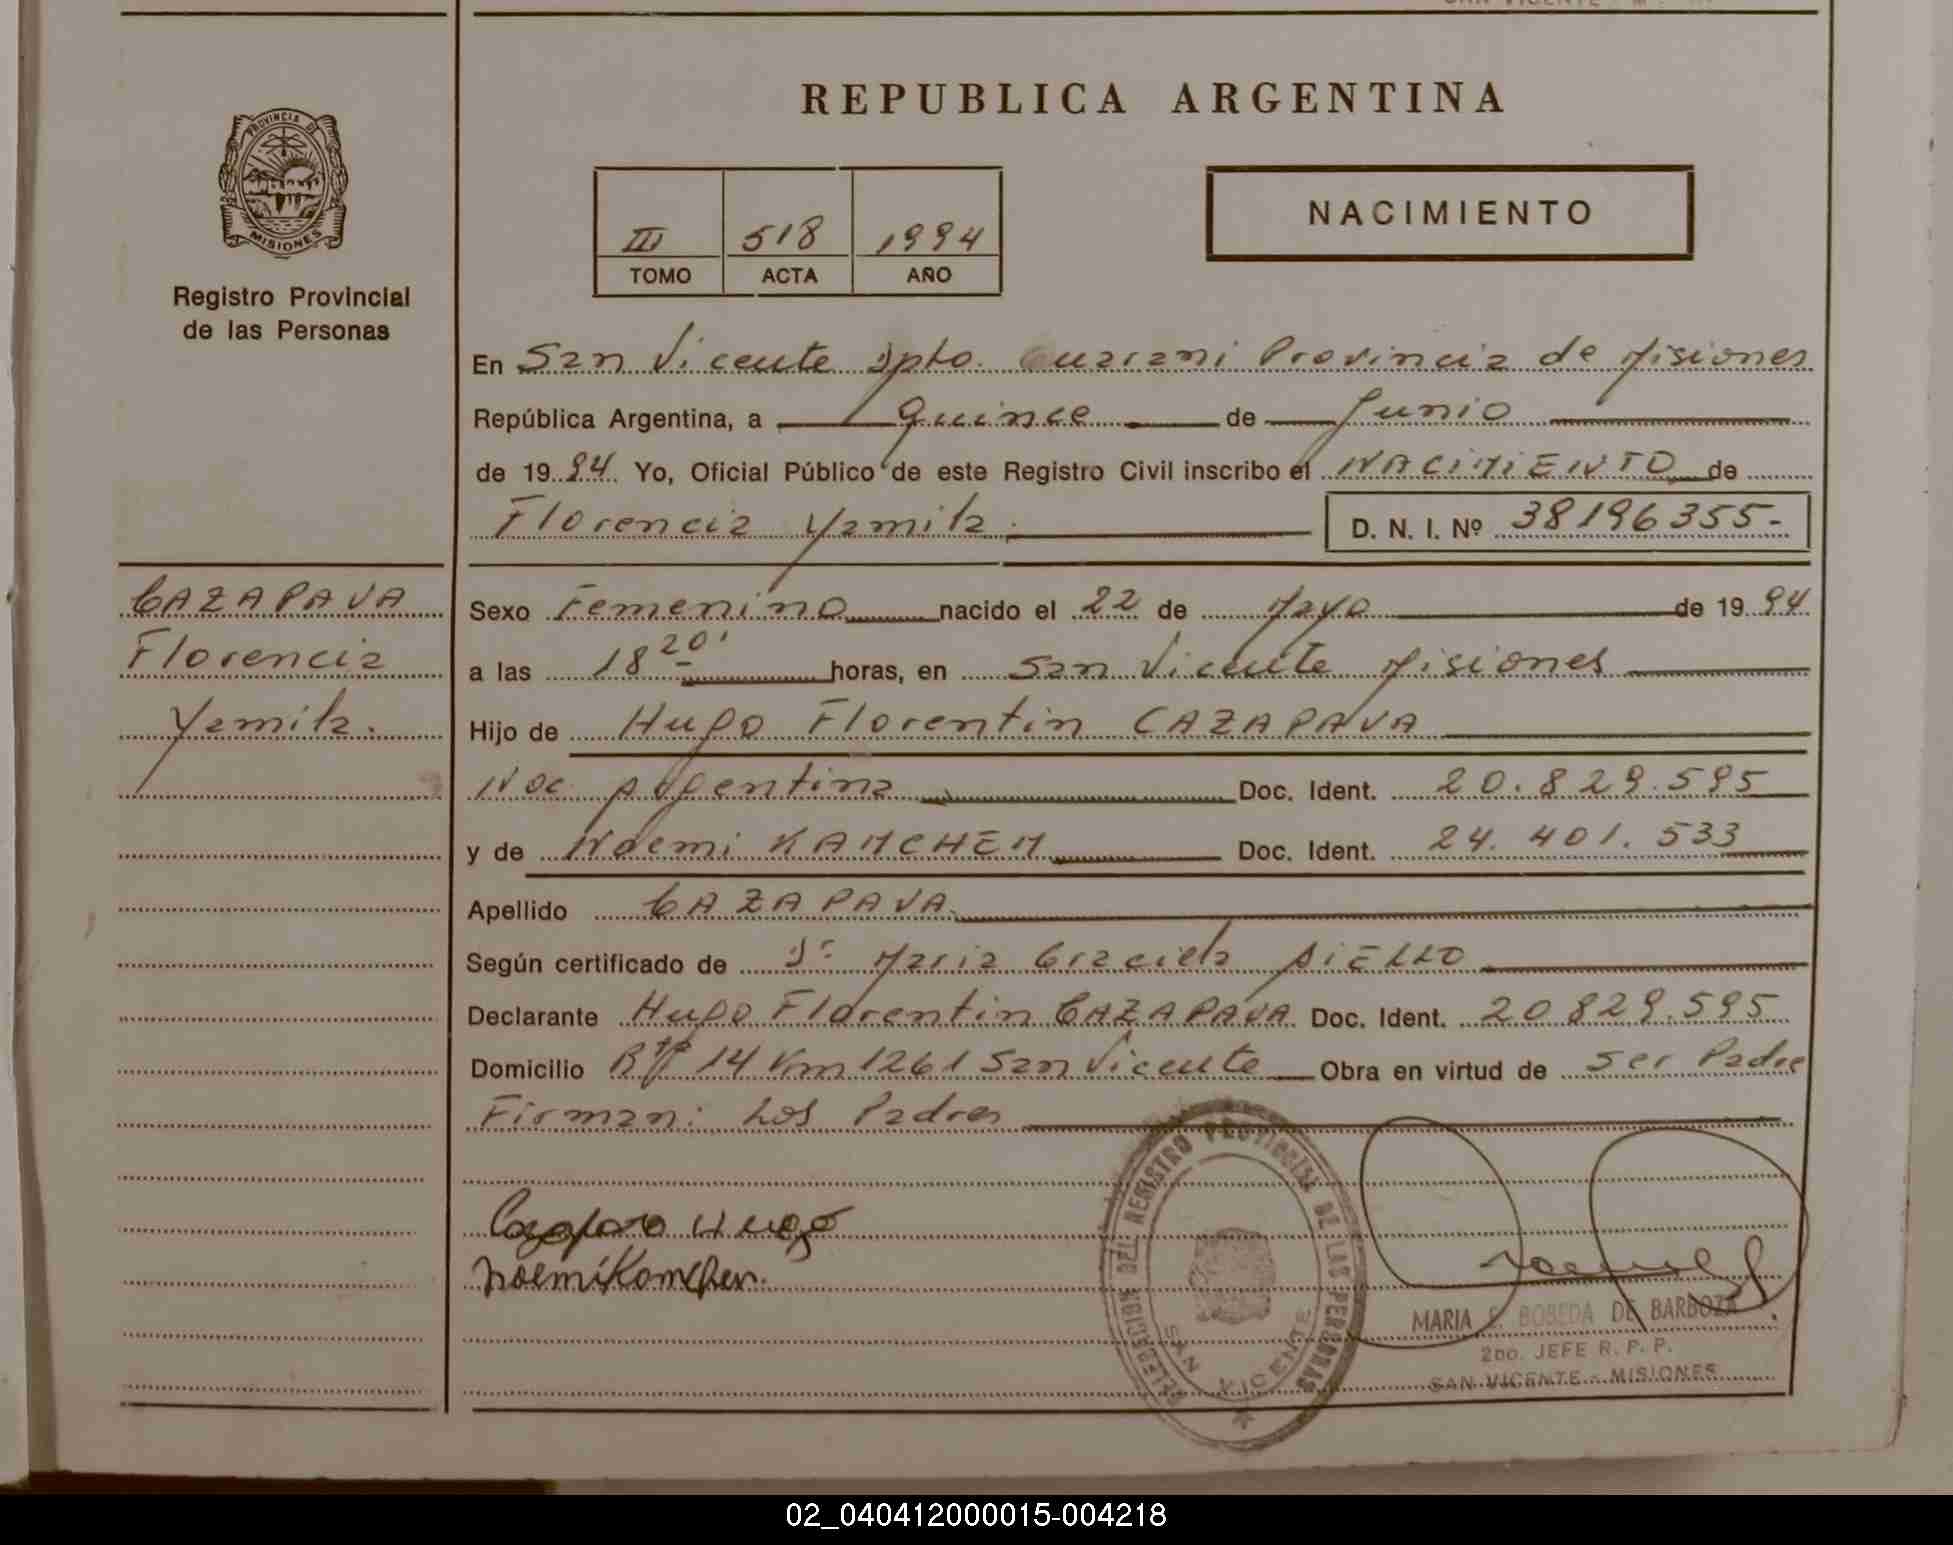 PROVINCIA DE
MISIONES
Registro Provincial
de las Personas
REPUBLICA ARGENTINA
III 518 1994
TOMO ACTA AÑO
NACIMIENTO
En San Vicente Dpto. Guarani Provincia de Misiones
República Argentina, a Quince de Junio
de 1994. Yo, Oficial Público de este Registro Civil inscribo el NACIMIENTO de
Florencia Yamila. D. N. I. Nº 38196355-
CAZAPAVA
Florencia
Yamila.
Sexo Femenino nacido el 22 de Mayo de 1994
a las 18 20' horas, en San Vicente Misiones
Hijo de Hugo Florentin CAZAPAVA
Nac. Argentina Doc. Ident. 20.829.595
y de Noemi KAMCHEM Doc. Ident. 24.401.533
Apellido CAZAPAVA.
Según certificado de Dr. Maria Graciela AIELLO
Declarante Hugo Florentin CAZAPAVA Doc. Ident. 20829.595
Domicilio Rta 14 Km 1261 San Vicente Obra en virtud de Ser Padre
Firman: Los Padres
Noemi Kamchen.
DELEGACION DEL REGISTRO PROVINCIAL DE LAS PERSONAS
SAN VICENTE
MARIA S. BOBEDA DE BARBOZA
2DO. JEFE R. P. P.
SAN VICENTE - MISIONES
02_040412000015-004218